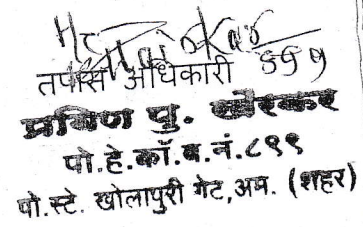 तपास अधिकारी
प्रविण पु. खेरकर
पो.हे.कॉ.ब.नं.८९९
पो.स्टे. खोलापुरी गेट,अम. (शहर)